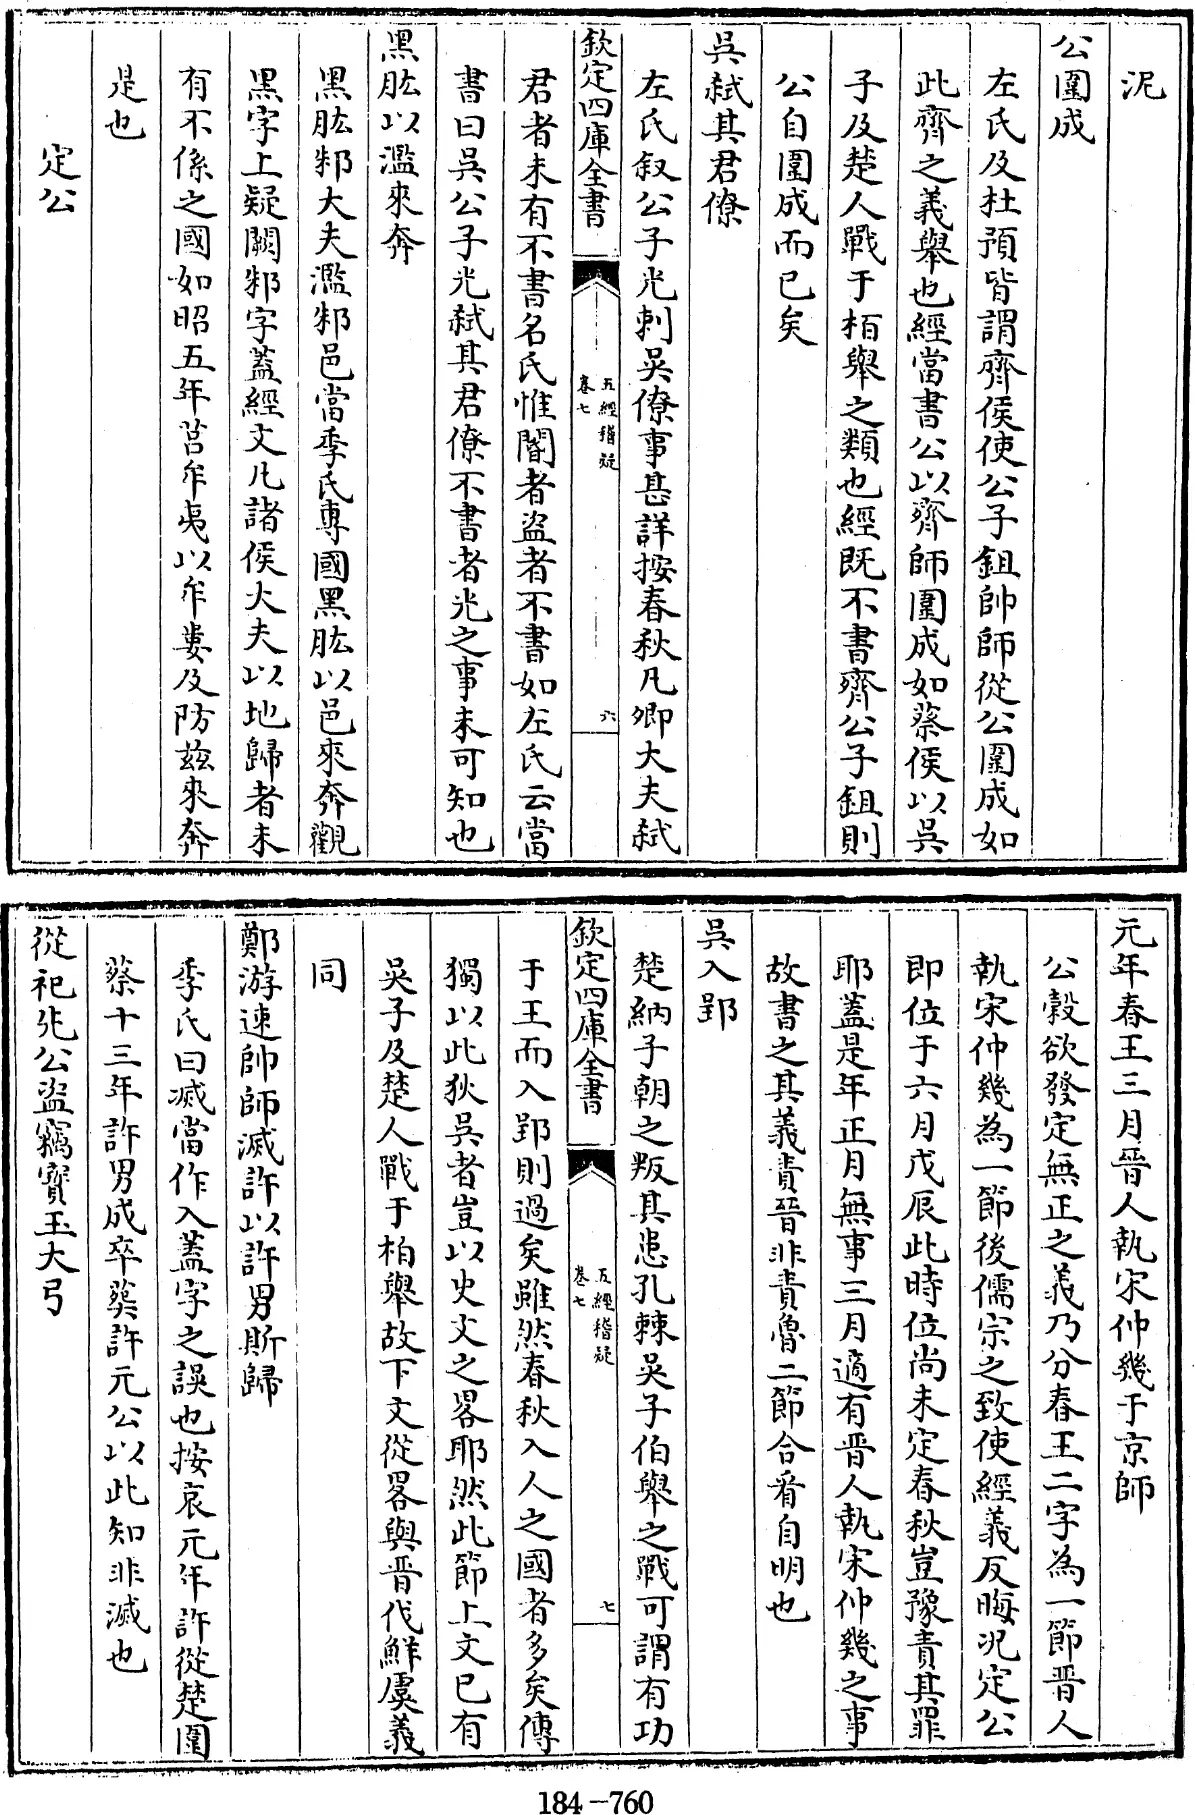 泥
公圍成
左氏及杜預皆謂齊侯使公子鉏帥師從公圍成如
此齊之義舉也經當書公以齊師圍成如蔡侯以吳
子及楚人戰于栢舉之類也經既不書齊公子鉏則
公自圍成而已矣
吳弑其君僚
左氏叙公子光刺吳僚事甚詳按春秋凡卿大夫弑
欽定四庫全書
五經稽疑
卷七
六
君者未有不書名氏惟閽者盗者不書如左氏云當
書曰吳公子光弑其君僚不書者光之事未可知也
黑肱以濫來奔
黑肱邾大夫濫邾邑當季氏專國黑肱以邑來奔觀
黑字上疑闕邾字蓋經文凡諸侯大夫以地歸者未
有不係之國如昭五年莒牟夷以牟婁及防兹來奔
是也
定公
元年春王三月晉人執宋仲幾于京師
公穀欲發定無正之義乃分春王二字為一節晉人
執宋仲幾為一節後儒宗之致使經義反晦况定公
即位于六月戊辰此時位尚未定春秋豈豫責其罪
耶蓋是年正月無事三月適有晉人執宋仲幾之事
故書之其義責晉非責魯二節合看自明也
吳入郢
楚納子朝之叛其恚孔棘吳子伯舉之戰可謂有功
欽定四庫全書
五經稽疑
卷七
七
于王而入郢則過矣雖然春秋入人之國者多矣傳
獨以此狄吳者豈以史文之畧耶然此節上文已有
吳子及楚人戰于柏舉故下文從畧與晉伐鮮虞義
同
鄭游速帥師滅許以許男斯歸
季氏曰滅當作入蓋字之誤也按哀元年許從楚圍
蔡十三年許男成卒葬許元公以此知非滅也
從祀先公盗竊寶玉大弓
184-760